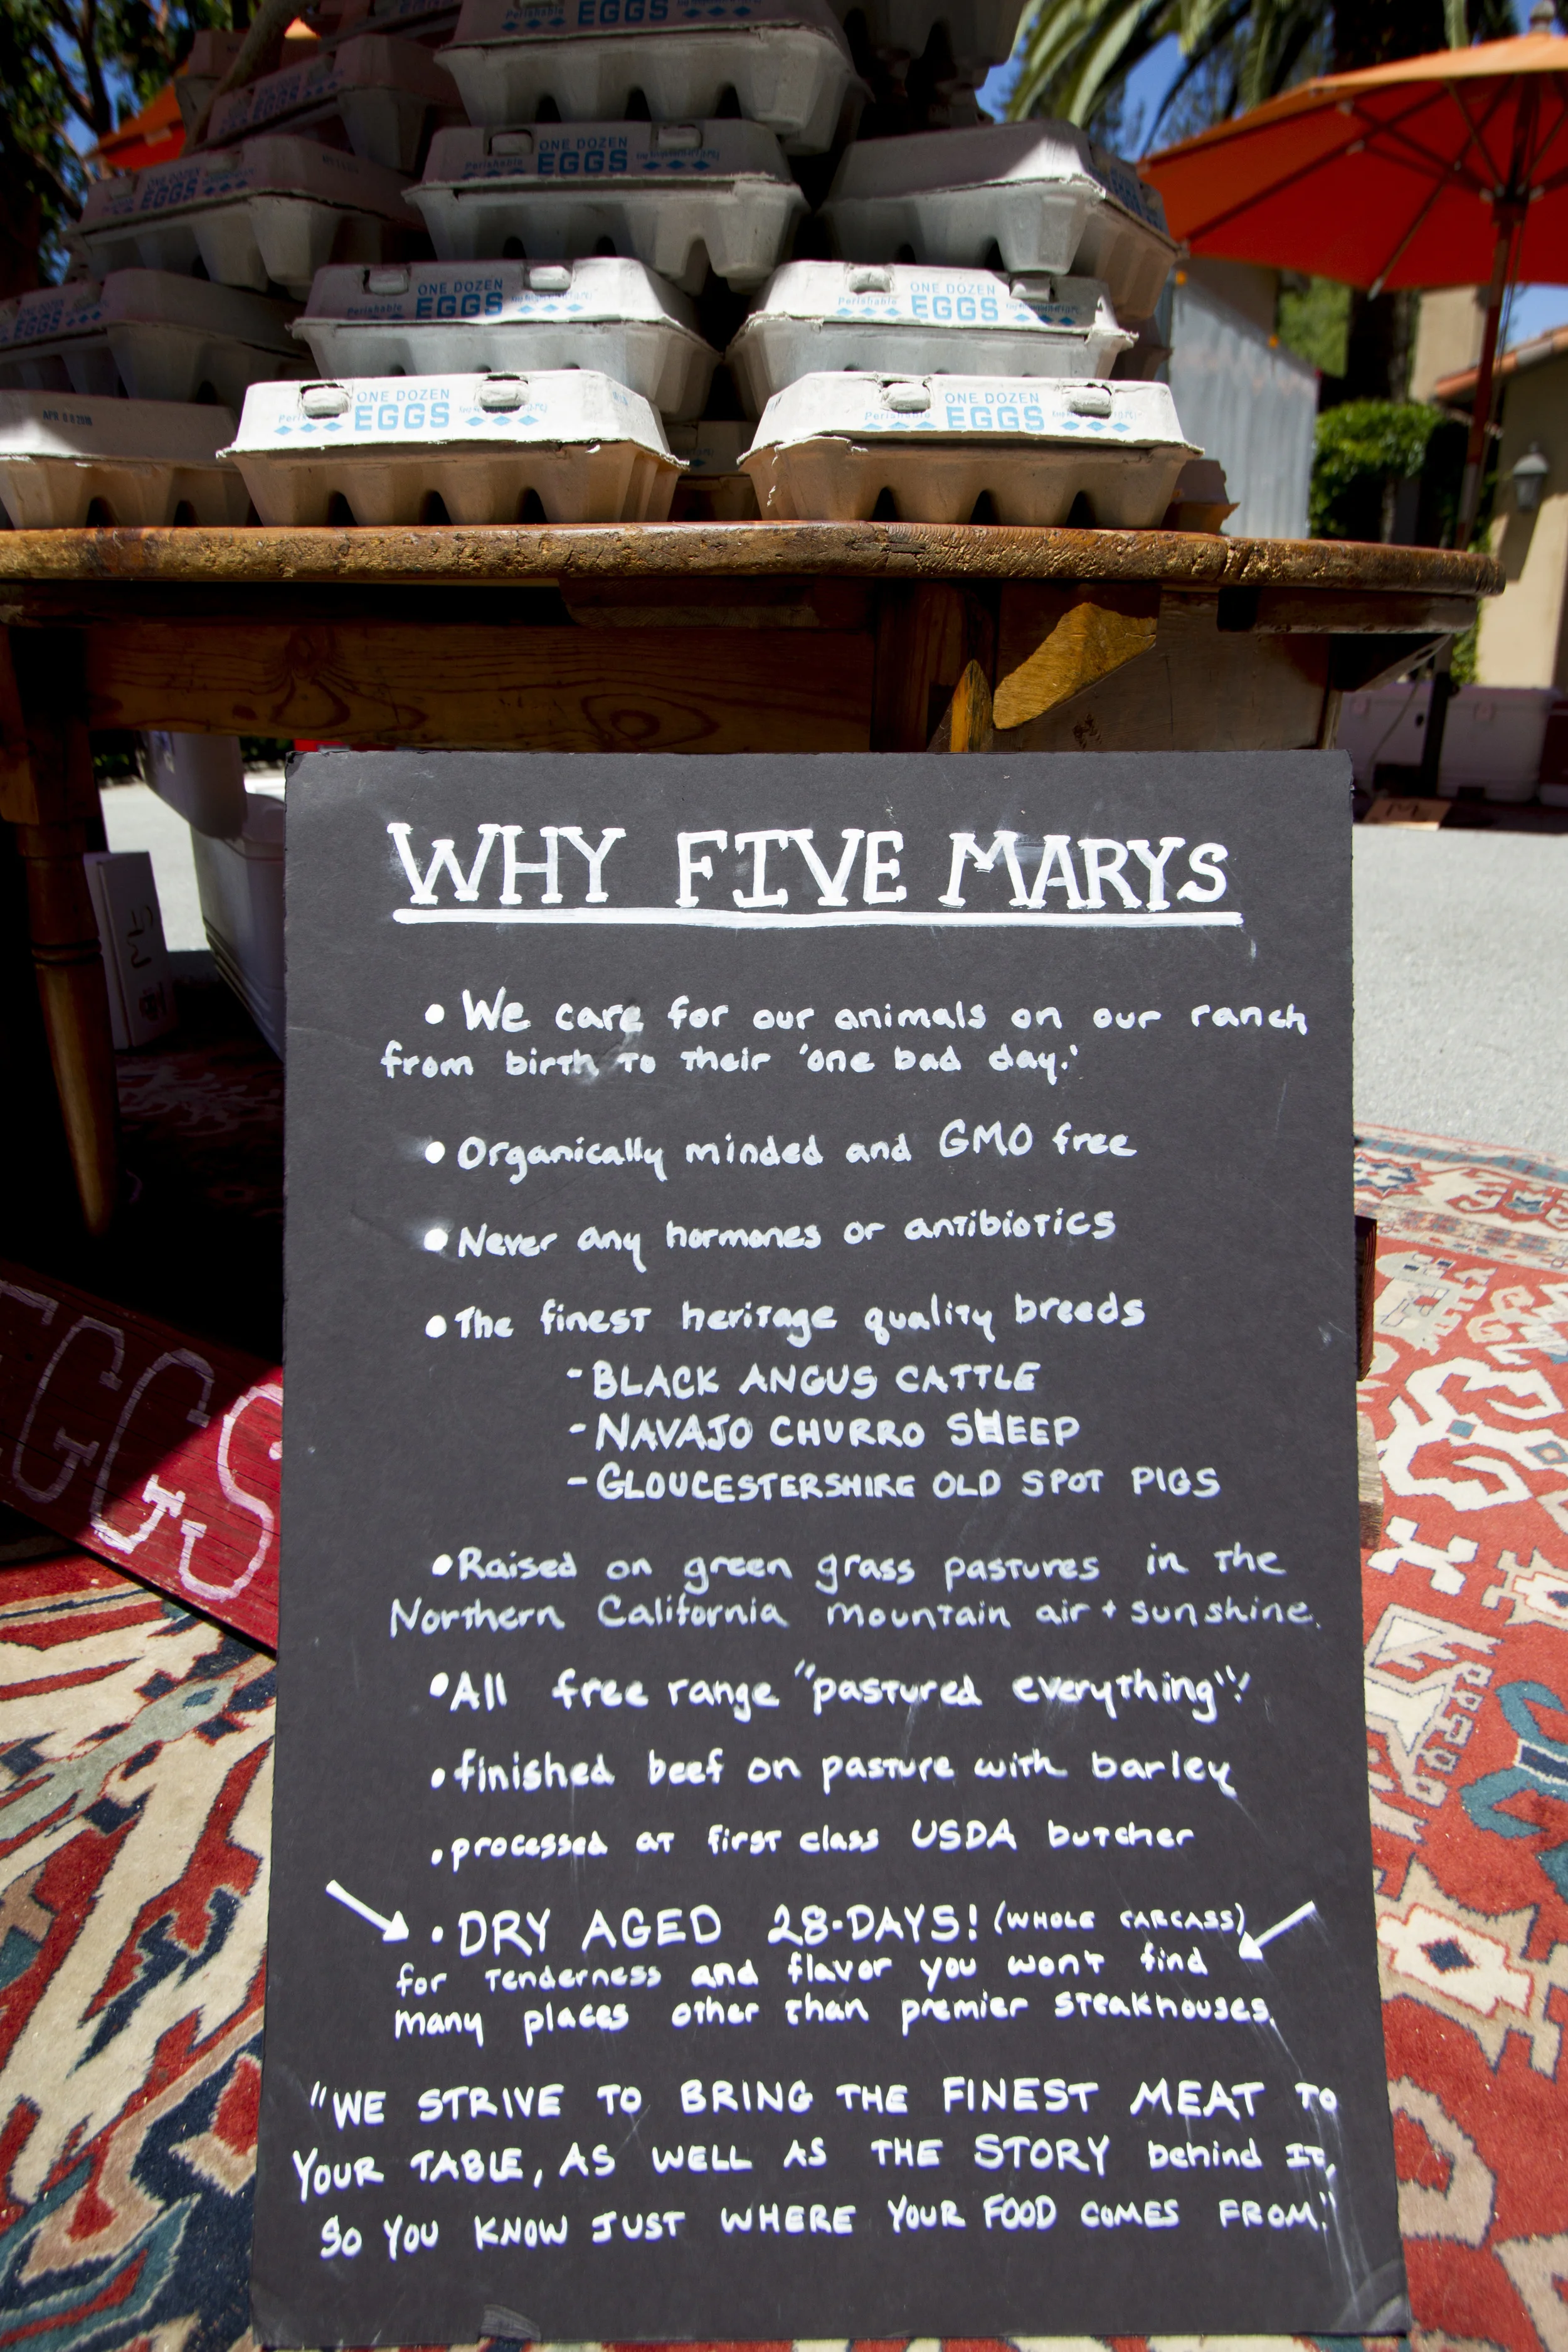 EGGS
Perishable
EGGS
ONE DOZEN
Perishable EGGS
EGGS
ONE DOZEN
Perishable EGGS
ONE DOZEN
Perishable EGGS
ONE DOZEN
EGGS
ONE DOZEN
Perishable EGGS
EGGS
WHY FIVE MARYS
• We care for our animals on our ranch
from birth to their 'one bad day.'
• Organically minded and GMO free
• Never any hormones or antibiotics
• The finest heritage quality breeds
- BLACK ANGUS CATTLE
- NAVAJO CHURRO SHEEP
- GLOUCESTERSHIRE OLD SPOT PIGS
• Raised on green grass pastures in the
Northern California mountain air + sunshine.
• All free range "pastured everything"!
• finished beef on pasture with barley
• processed at first class USDA butcher
• DRY AGED 28-DAYS! (WHOLE CARCASS)
for tenderness and flavor you won't find
many places other than premier steakhouses.
"WE STRIVE TO BRING THE FINEST MEAT TO
YOUR TABLE, AS WELL AS THE STORY behind IT,
SO YOU KNOW JUST WHERE YOUR FOOD COMES FROM."